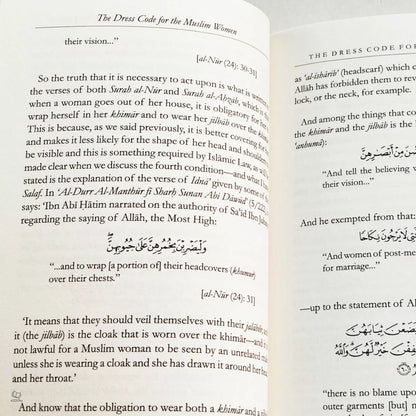 The Dress Code for the Muslim Women
their vision..."
[al-Nūr (24): 30-31]
So the truth that it is necessary to act upon is what is
the verses of both Surah al-Nūr and Surah al-Aḥzāb, which
when a woman goes out of her house, it is obligatory for he
wrap herself in her khimār and to wear her jilbāb over the
This is because, as we said previously, it is better covering for
and makes it less likely for the shape of her head and shoulders
be visible and this is something required by Islāmic Law, as will
made clear when we discuss the fourth condition—and what I
stated is the explanation of the verse of Idnā' given by some of
Salaf. In 'Al-Durr Al-Manthūr fi Sharḥ Sunan Abi Dāwūd' (5/22
says: 'Ibn Abi Ḥātim narrated on the authority of Sa'īd Ibn Juba
regarding the saying of Allāh, the Most High:
وَلْيَضْرِبْنَ بِخُمُرِهِنَّ عَلَىٰ جُيُوبِهِنَّ ۖ
"...and to wrap [a portion of] their headcovers (khumur)
over their chests."
[al-Nūr (24): 31]
'It means that they should veil themselves with their jalābīb and
it (the jilbāb) is the cloak that is worn over the khimār—and
not lawful for a Muslim woman to be seen by an unrelated m
unless she is wearing a cloak and she has drawn it around her
and her throat.'
And know that the obligation to wear both a khimār and a jilbā
THE DRESS CODE FO
as 'al-ishārib' (headscarf) which c
Allāh has forbidden them to reve
lock, or the neck, for example.
And among the things that co
the khimār and the jilbāb is the
'anhumā):
مِنْ أَبْصَٰرِهِنَّ
"And tell the believing w
their vision..."
And he exempted from that:
ٱلَّٰتِى لَا يَرْجُونَ نِكَاحًا
"And women of post-me
for marriage..."
—up to the statement of Al
يَضَعْنَ ثِيَابَهُنَّ
خَيْرٌ لَّهُنَّ ۗ وَٱللَّهُ
"there is no blame upo
outer garments [but] n